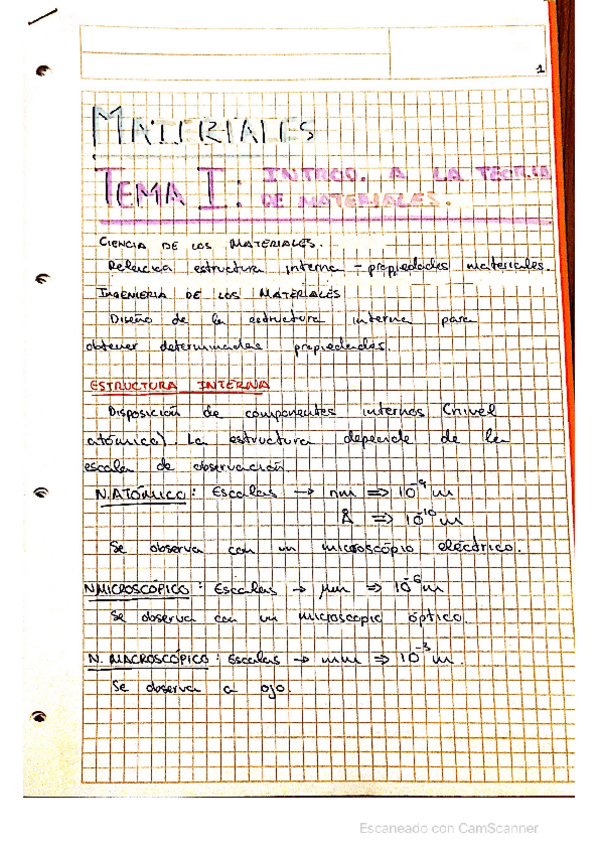 1
MATERIALES
TEMA I: INTROD. A LA TEORIA
DE MATERIALES.
CIENCIA DE LOS MATERIALES.
Relación estructura interna - propiedades materiales.
INGENIERIA DE LOS MATERIALES
Diseño de la estructura interna para
obtener determinadas propiedades.
ESTRUCTURA INTERNA
Disposición de componentes internos (nivel
atómico). La estructura depende de la
escala de observación
N.ATÓMICO: Escalas → nm ⇒ 10⁻⁹ m
Å ⇒ 10⁻¹⁰ m
Se observa con un microscópio eléctrico.
N.MICROSCÓPICO: Escalas → μm ⇒ 10⁻⁶ m
Se observa con un microscopio óptico.
N. MACROSCÓPICO: Escalas → mm ⇒ 10⁻³ m.
Se observa a ojo.
Escaneado con CamScanner